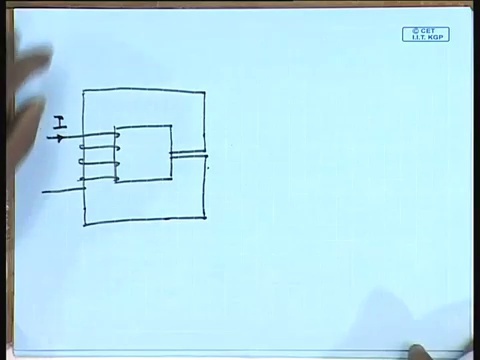 © CET
I.I.T. KGP
I